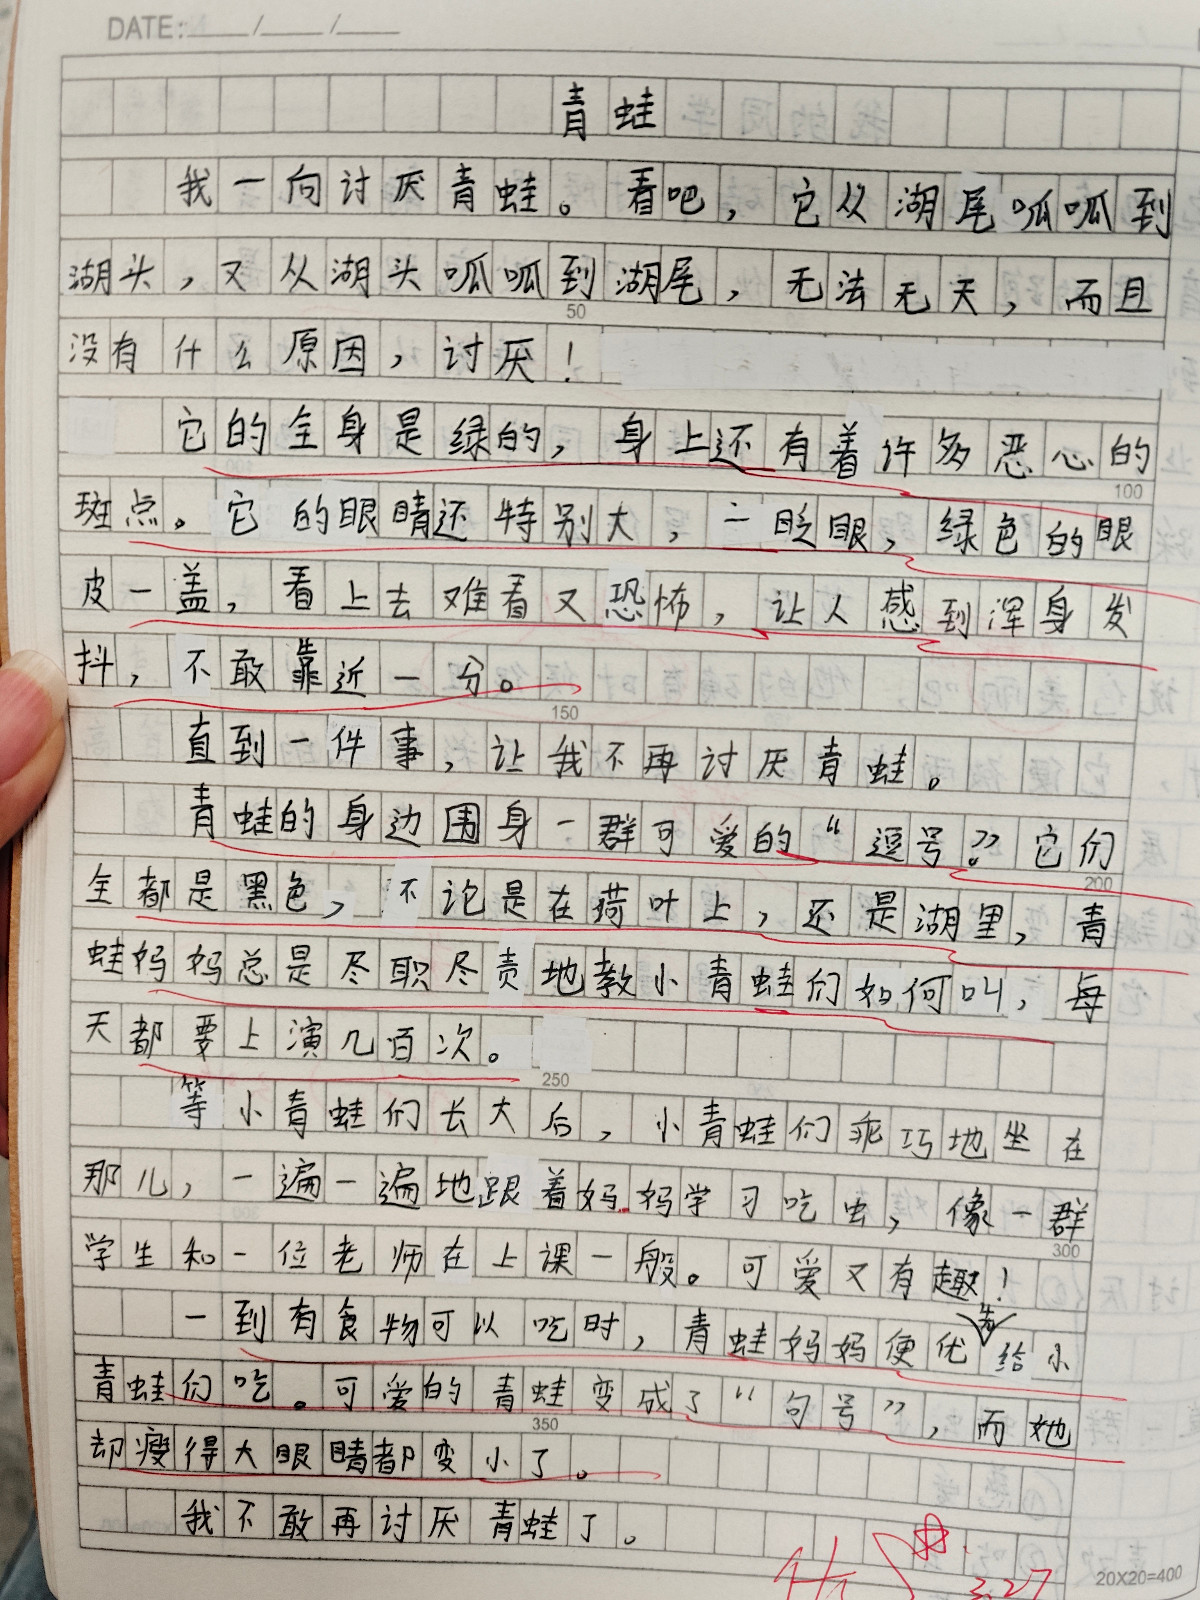 DATE:
青蛙
我一向讨厌青蛙。看吧，它从湖尾呱呱到
湖头，又从湖头呱呱到湖尾，无法无天，而且
50
没有什么原因，讨厌！
它的全身是绿的，身上还有着许多恶心的
100
斑点。它的眼睛还特别大，一眨眼，绿色的眼
皮一盖，看上去难看又恐怖，让人感到浑身发
抖，不敢靠近一分。
150
直到一件事，让我不再讨厌青蛙。
青蛙的身边围身一群可爱的“逗号”。它们
200
全都是黑色，不论是在荷叶上，还是湖里，青
蛙妈妈总是尽职尽责地教小青蛙们如何叫，每
天都要上演几百次。
250
等小青蛙们长大后，小青蛙们乖巧地坐在
那儿，一遍一遍地跟着妈妈学习吃虫，像一群
300
学生和一位老师在上课一般。可爱又有趣！
一到有食物可以吃时，青蛙妈妈便优先给小
青蛙们吃。可爱的青蛙变成了“句号”，而她
350
却瘦得大眼睛都变小了。
我不敢再讨厌青蛙了。
3.27
20X20=400